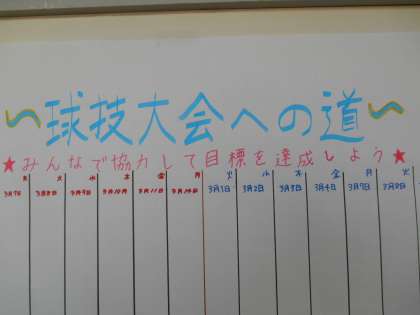 〜球技大会への道〜
★みんなで協力して目標を達成しよう★
月 火 水 木 金 月 火 水 木 金 月 火
3月7日 3月8日 3月9日 3月10日 3月11日 3月14日 3月1日 3月2日 3月3日 3月4日 3月7日 3月8日